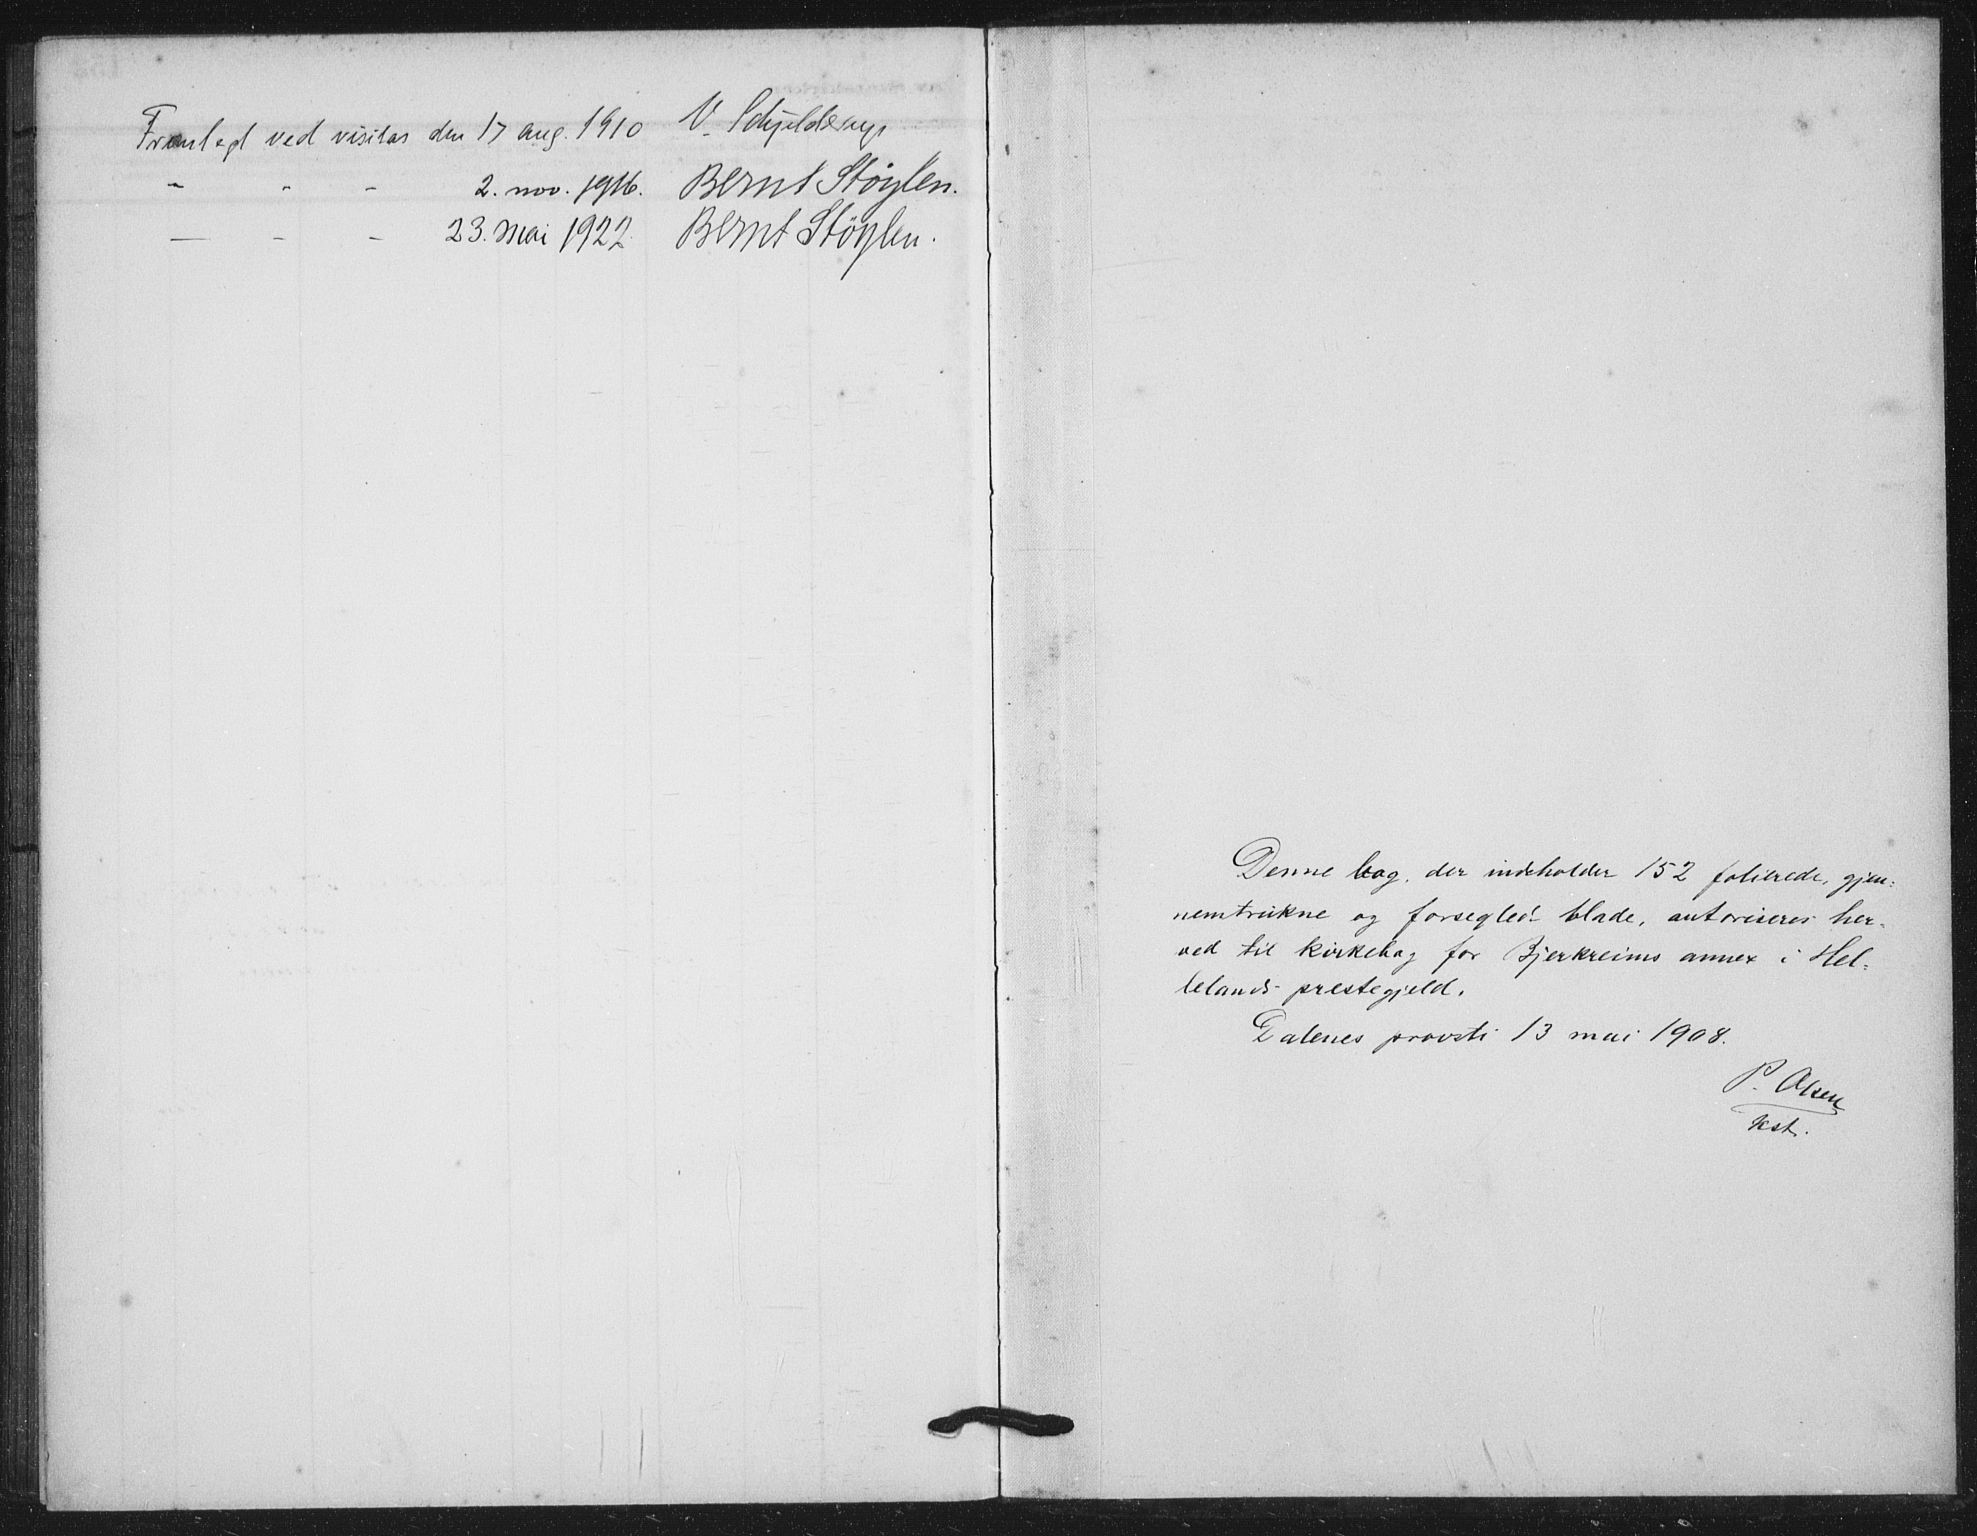 Fremlagt ved visitas den 17 aug. 1910 V. Schjelderup
" " " 2. nov. 1916. Bernt Støylen.
— - - 23. mai 1922 Bernt Støylen.
Denne bog, der indeholder 152 folierede, gjen-
nemtrukne og forseglede blade, autoriseres her-
ved til kirkebog for Bjerkreims annex i Hel-
lelands prestegjeld.
Dalenes provsti 13 mai 1908.
P. Olsen
kst.